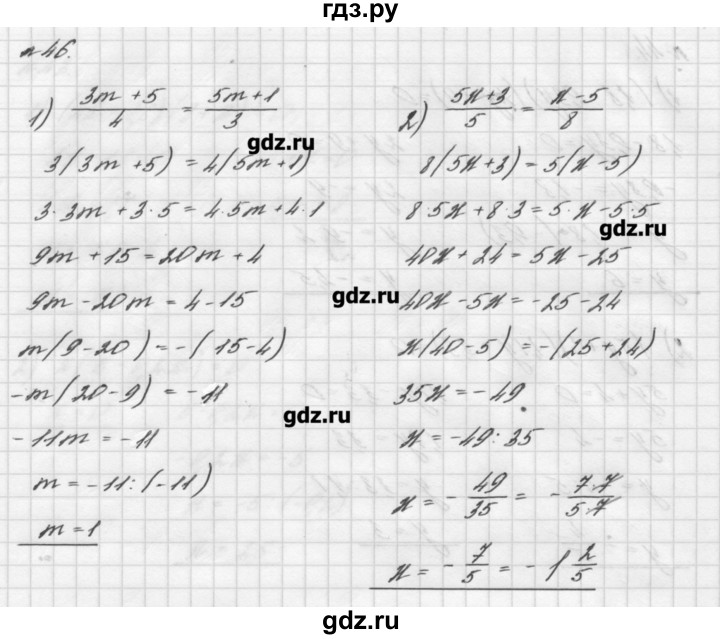 гдз.ру
№46.
1) (3m + 5)/4 = (5m + 1)/3
3(3m + 5) = 4(5m + 1)
3·3m + 3·5 = 4·5m + 4·1
9m + 15 = 20m + 4
9m - 20m = 4 - 15
m(9 - 20) = -(15 - 4)
-m(20 - 9) = -11
-11m = -11
m = -11:(-11)
m = 1
2) (5x + 3)/5 = (x - 5)/8
8(5x + 3) = 5(x - 5)
8·5x + 8·3 = 5·x - 5·5
40x + 24 = 5x - 25
40x - 5x = -25 - 24
x(40 - 5) = -(25 + 24)
35x = -49
x = -49:35
x = -49/35 = -7·7/5·7
x = -7/5 = -1 2/5
gdz.ru
gdz.ru
gdz.ru
gdz.ru
gdz.ru